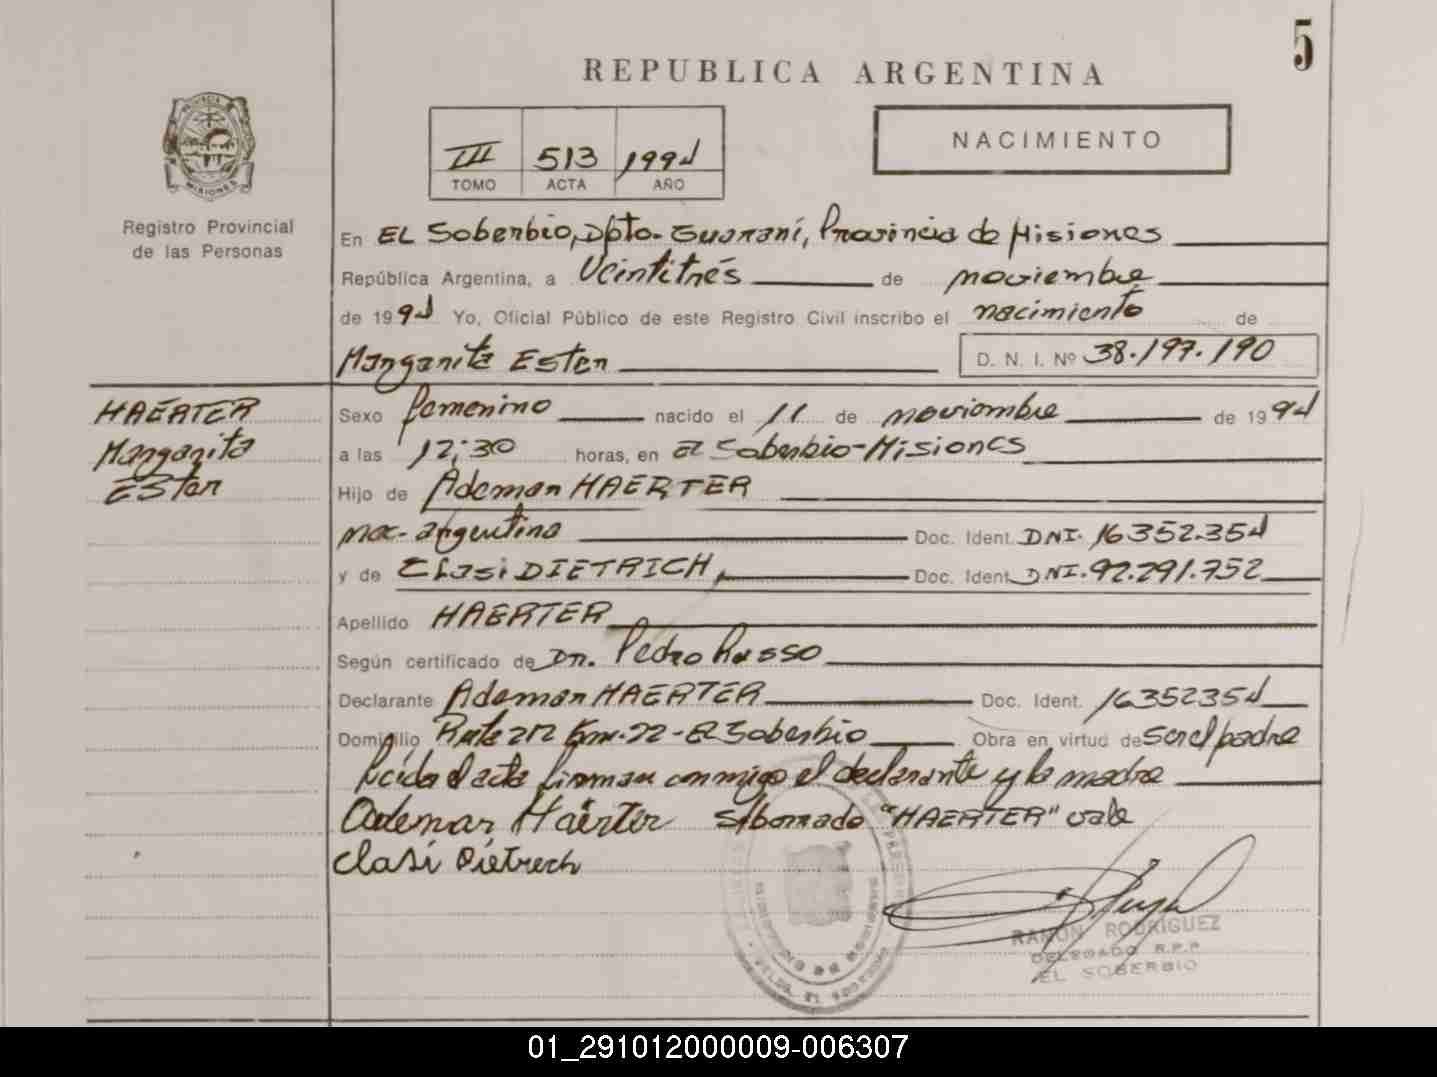 5
REPUBLICA ARGENTINA
NACIMIENTO
III 513 1994
TOMO ACTA AÑO
PROVINCIA DE MISIONES
Registro Provincial
de las Personas
En EL Soberbio, Dpto. Guaraní, Provincia de Misiones
República Argentina, a Veintitrés de noviembre
de 1994 Yo, Oficial Público de este Registro Civil inscribo el nacimiento de
Margarita Ester D. N. I. Nº 38.197.190
HAERTER
Margarita
Ester
Sexo femenino nacido el 11 de noviembre de 1994
a las 12:30 horas, en El Soberbio-Misiones
Hijo de Ademar HAERTER
nac. argentina Doc. Ident. DNI. 16352.354
y de Clasi DIETRICH, Doc. Ident. DNI. 92.291.752
Apellido HAERTER
Según certificado de Dr. Pedro Russo
Declarante Ademar HAERTER Doc. Ident. 16352354
Domicilio Ruta 212 Km. 22 - El Soberbio Obra en virtud de ser el padre
Leída el acta firman conmigo el declarante y la madre
Ademar Haërter S/borrado "HAERTER" vale
Clasi Dietrech
RAMON RODRIGUEZ
DELEGADO R.P.P.
EL SOBERBIO
01_291012000009-006307